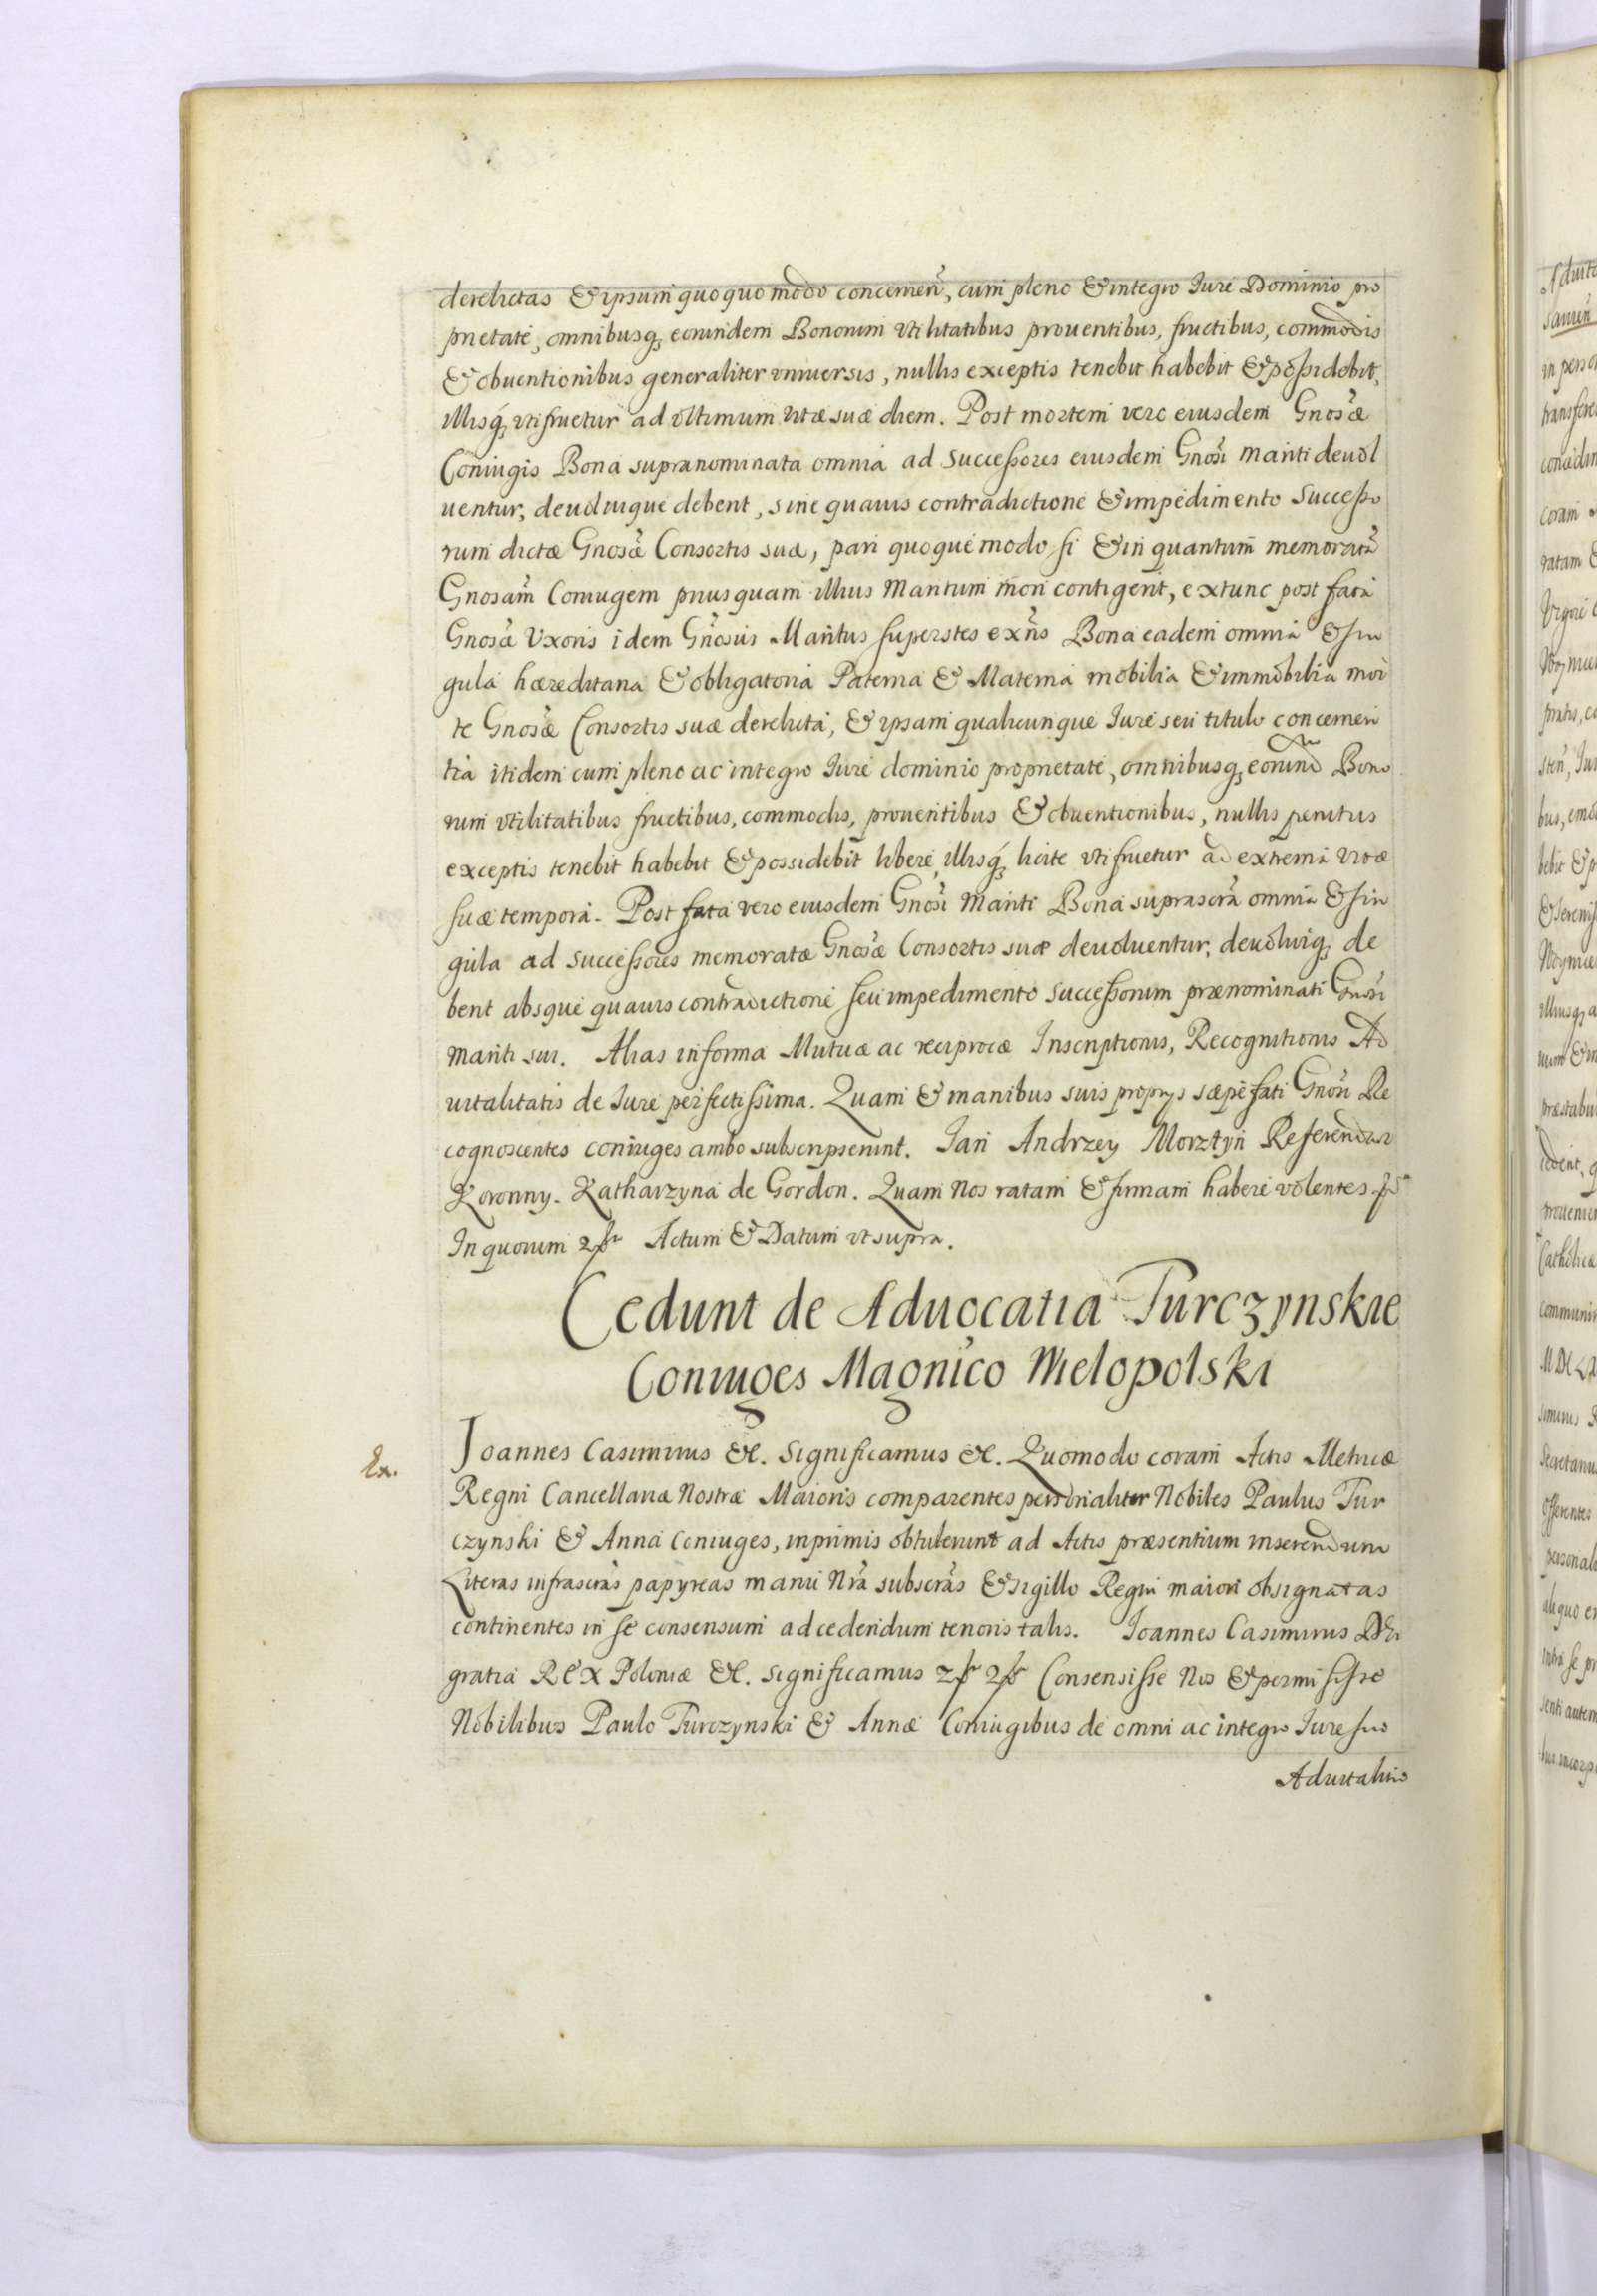 derelictas & ipsum quoquo modo concernen̄, cum pleno & integro Iure Dominio pro
prietate, omnibusq₃ eorundem Bonorum vtilitatibus prouentibus, fructibus, commodis
& obuentionibus generaliter vniuersis, nullis exceptis tenebit habebit & poßidebit,
illisq₃ vtifruetur ad vltimum vitæ suæ diem. Post mortem vero eiusdem Gnosæ
Coniugis Bona supranominata omnia ad Successores eiusdem Gnosi mariti deuol
uentur, deuoluique debent, sine quauis contradictione & impedimento Successo
rum dictæ Gnosæ Consortis suæ, pari quoque modo si & in quantum memoratā
Gnosam̄ Coniugem priusquam illius Maritum mori contigerit, extunc post fata
Gnosæ Vxoris idem Gnosus Maritus superstes exn̄s Bona eadem omnia & sin
gula hæreditaria & obligatoria Paterna & Materna mobilia & immobilia mor
te Gnosæ Consortis suæ derelicta, & ipsam qualicunque Iure seu titulo concernen
tia itidem cum pleno ac integro Iure dominio proprietate, omnibusq₃ eorund Bono
rum vtilitatibus fructibus, commodis, prouentibus & obuentionibus, nullis penitus
exceptis tenebit habebit & possidebit libere, illisq₃ licite vtifruetur ad extrema vitæ
suæ tempora. Post fata vero eiusdem Gnosi Mariti Bona suprascrā omnia & sin
gula ad Successores memoratæ Gnosæ Consortis suæ deuoluentur, deuoluiq₃ de
bent absque quauis contradictione seu impedimento Successorum prænominati Gnosi
mariti sui. Alias in forma Mutuæ ac reciprocæ Inscriptionis, Recognitionis Ad
uitalitatis de Iure perfectissima. Quam & manibus suis proprijs sæpefati Gnosi Re
cognoscentes coniuges ambo subscripserunt. Jan Andrzey Morztyn Referendarz
Koronny. Katharzyna de Gordon. Quam Nos ratam & firmam habere volentes
In quorum Actum & Datum vt supra.
Cedunt de Aduocatia Turczynskie
Coniuges Magnico Wielopolski
Ex.
Joannes Casimirus &c. Significamus &c. Quomodo coram Actis Metricæ
Regni Cancellariæ Nostræ Maioris comparentes personaliter Nobiles Paulus Tur
czynski & Anna Coniuges, inprimis obtulerunt ad Actis præsentium inserendum
Literas infrascrās papyreas manu Nrā subscrās & sigillo Regni maiori obsignatas
continentes in se consensum ad cedendum tenoris talis. Joannes Casimirus Dei
gratia Rex Poloniæ &c. Significamus Consensisse Nos & permisisse
Nobilibus Paulo Turczynski & Annæ Coniugibus de omni ac integro Iure suo
Aduitalitis